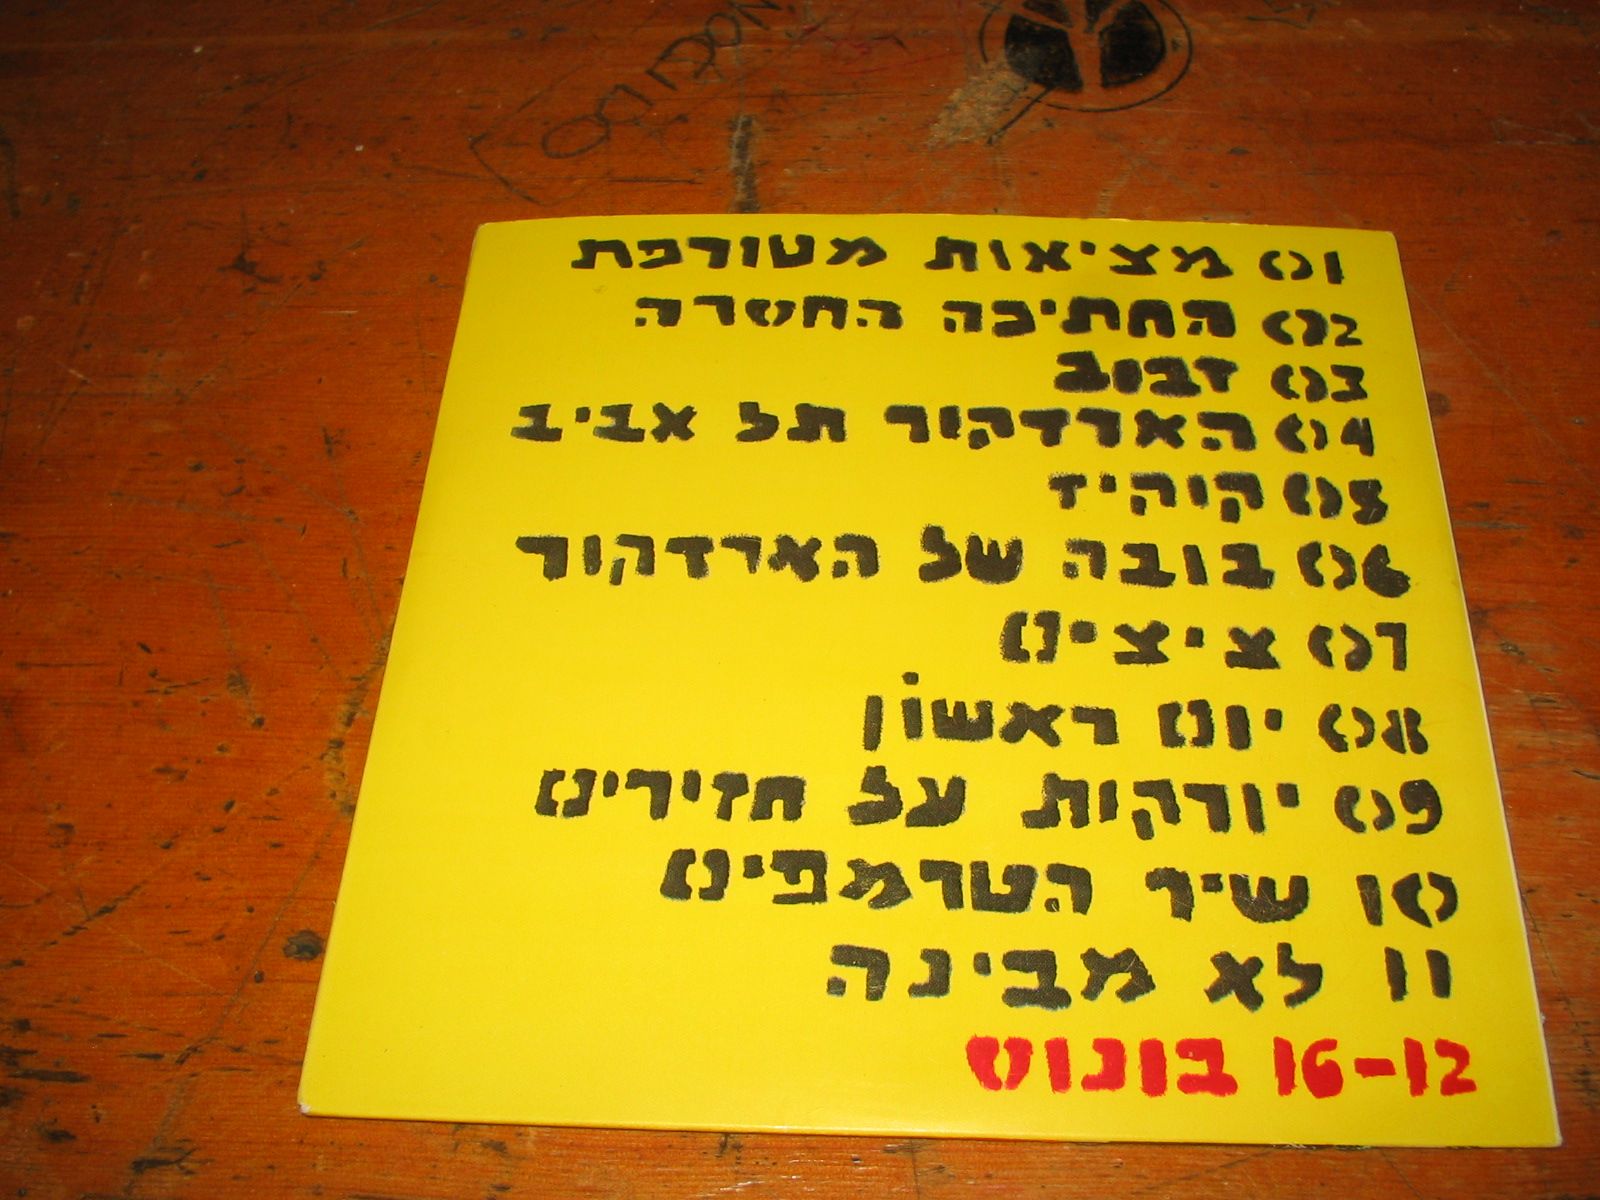 01 מציאות מטורפת
02 החתיכה החסרה
03 זבוב
04 הארדקור תל אביב
05 קוקיז
06 בובה של הארדקור
07 ציצים
08 יום ראשון
09 יורקות על חזירים
10 שיר הטרמפים
11 לא מבינה
12-16 בונוס